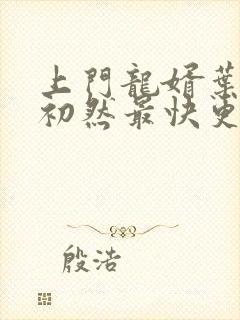 上門龍婿葉
初然最快更
殷浩